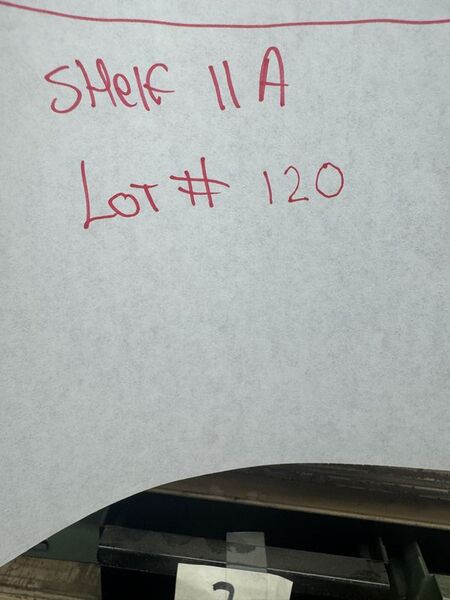 SHelF 11A
LoT # 120